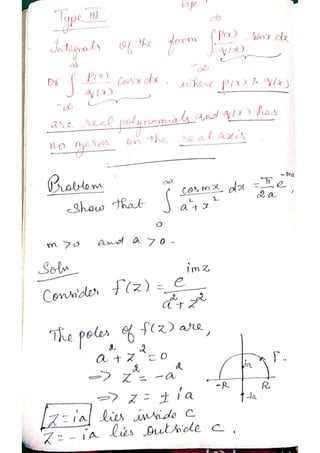 Type III
∞
Integrals of the form ∫ P(x)/q(x) sinx dx
-∞
∞
Or ∫ P(x)/q(x) cosx dx . where P(x) & q(x)
-∞
are real polynomials and q(x) has
no zeros on the real axis.
Problem
Show that ∫₀^∞ cos mx/(a²+x²) dx = π/2a e^-ma,
m>0 and a>0.
Soln
Consider f(z) = e^imz/(a²+z²)
The poles of f(z) are,
a²+z²=0
=> z² = -a²
=> z = ± ia
z=ia lies inside C
z=-ia lies outside C.
Γ
ia
-R R
-ia